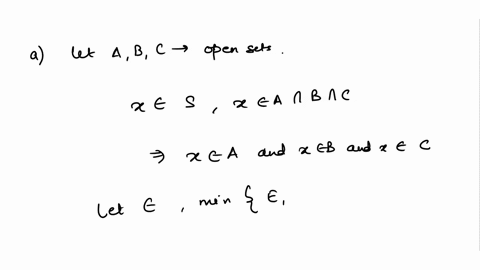 a) let A, B, C → open sets.
x ∈ S , x ∈ A ∩ B ∩ C
⇒ x ∈ A and x ∈ B and x ∈ C
Let ∈ , min { ∈,